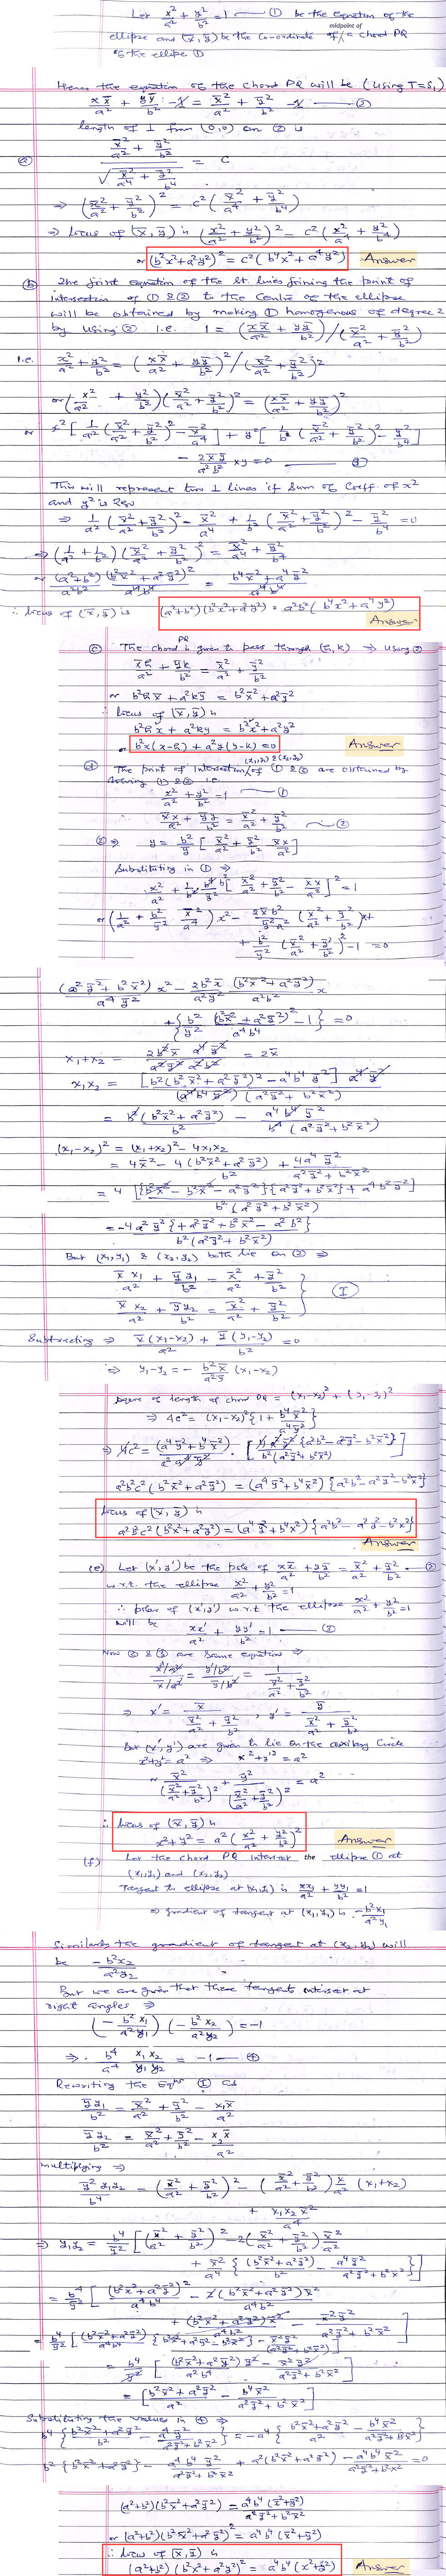 Let x²/a² + y²/b² = 1 —① be the equation of the
midpoint of
ellipse and (x̄, ȳ) be the co-ordinate of a chord PQ
of the ellipse ①
Hence the equation of the chord PQ will be (using T=S₁)
xx̄/a² + yȳ/b² - 1 = x̄²/a² + ȳ²/b² - 1 —②
length of ⊥ from (0,0) on ② is
ⓐ (x̄²/a² + ȳ²/b²) / √(x̄²/a⁴ + ȳ²/b⁴) = c
⇒ (x̄²/a² + ȳ²/b²)² = c²(x̄²/a⁴ + ȳ²/b⁴)
⇒ locus of (x̄, ȳ) is (x²/a² + y²/b²)² = c²(x²/a⁴ + y²/b⁴)
or (b²x²+a²y²)² = c²(b⁴x²+a⁴y²) Answer
ⓑ The joint equation of the st lines joining the point of
intersection of ① & ② to the centre of the ellipse
will be obtained by making ① homogenous of degree 2
by using ② i.e. 1 = (xx̄/a² + yȳ/b²)/(x̄²/a² + ȳ²/b²)
i.e. x²/a² + y²/b² = (xx̄/a² + yȳ/b²)²/(x̄²/a² + ȳ²/b²)²
or (x²/a² + y²/b²)(x̄²/a² + ȳ²/b²)² = (xx̄/a² + yȳ/b²)²
or x²[1/a² (x̄²/a² + ȳ²/b²)² - x̄²/a⁴] + y²[1/b² (x̄²/a² + ȳ²/b²)² - ȳ²/b⁴]
- 2x̄ȳ/a²b² xy = 0 —③
This will represent two ⊥ lines if sum of coeff. of x²
and y² is zero
⇒ 1/a² (x̄²/a² + ȳ²/b²)² - x̄²/a⁴ + 1/b² (x̄²/a² + ȳ²/b²)² - ȳ²/b⁴ = 0
⇒ (1/a² + 1/b²)(x̄²/a² + ȳ²/b²)² = x̄²/a⁴ + ȳ²/b⁴
or (a²+b²)/a²b² (b²x̄²+a²ȳ²)²/a⁴b⁴ = (b⁴x̄²+a⁴ȳ²)/a⁴b⁴
∴ locus of (x̄, ȳ) is (a²+b²)(b²x²+a²y²)² = a²b²(b⁴x²+a⁴y²)
Answer
ⓒ The chord PQ is given to pass through (h,k) ⇒ using ②
x̄h/a² + ȳk/b² = x̄²/a² + ȳ²/b²
or b²hx̄ + a²kȳ = b²x̄²+a²ȳ²
∴ locus of (x̄, ȳ) is
b²hx + a²ky = b²x²+a²y²
or b²x(x-h) + a²y(y-k) = 0 Answer
ⓓ The point of intersection (x₁,y₁) & (x₂,y₂) of ① & ② are obtained by
solving ① & ② i.e.
x²/a² + y²/b² = 1 —①
xx̄/a² + yȳ/b² = x̄²/a² + ȳ²/b² —②
② ⇒ y = b²/ȳ [x̄²/a² + ȳ²/b² - xx̄/a²]
Substituting in ① ⇒
x²/a² + 1/b² b⁴/ȳ² [x̄²/a² + ȳ²/b² - xx̄/a²]² = 1
or (1/a² + b²/ȳ² x̄²/a⁴)x² - 2x̄b²/ȳ²a² (x̄²/a² + ȳ²/b²)x +
+ b²/ȳ² (x̄²/a² + ȳ²/b²)² - 1 = 0
(a²ȳ²+b²x̄²)/a⁴ȳ² x² - 2b²x̄/a²ȳ² (b²x̄²+a²ȳ²)/a²b² x
+ {b²/ȳ² (b²x̄²+a²ȳ²)²/a⁴b⁴ - 1} = 0
x₁+x₂ = 2b²x̄ a⁴ȳ²/a²ȳ² a²b² = 2x̄
x₁x₂ = [b²(b²x̄²+a²ȳ²)² - a⁴b⁴ȳ²] a⁴ȳ²/(a⁴b⁴ȳ²)(a²ȳ²+b²x̄²)
= b²(b²x̄²+a²ȳ²)/b² - a⁴b⁴ȳ²/b⁴(a²ȳ²+b²x̄²)
(x₁-x₂)² = (x₁+x₂)² - 4x₁x₂
= 4x̄² - 4(b²x̄²+a²ȳ²)/b² + 4a⁴ȳ²/(a²ȳ²+b²x̄²)
= 4[{b²x̄²-b²x̄²-a²ȳ²}{a²ȳ²+b²x̄²}+a⁴b²ȳ²]/b²(a²ȳ²+b²x̄²)
= -4a²ȳ²{+a²ȳ²+b²x̄²-a²b²}/b²(a²ȳ²+b²x̄²)
But (x₁,y₁) & (x₂,y₂) both lie on ② ⇒
x̄x₁/a² + ȳy₁/b² = x̄²/a² + ȳ²/b²
x̄x₂/a² + ȳy₂/b² = x̄²/a² + ȳ²/b² } Ⓘ
Subtracting ⇒ x̄(x₁-x₂)/a² + ȳ(y₁-y₂)/b² = 0
⇒ y₁-y₂ = - b²x̄/a²ȳ (x₁-x₂)
square of length of chord PQ = (x₁-x₂)²+(y₁-y₂)²
⇒ 4c² = (x₁-x₂)²{1 + b⁴x̄²/a⁴ȳ²}
⇒ 4c² = (a⁴ȳ²+b⁴x̄²)/a⁴ȳ² · [4a²ȳ²{a²b²-a²ȳ²-b²x̄²}/b²(a²ȳ²+b²x̄²)]
a²b²c²(b²x̄²+a²ȳ²) = (a⁴ȳ²+b⁴x̄²){a²b²-a²ȳ²-b²x̄²}
locus of (x̄, ȳ) is
a²b²c²(b²x²+a²y²) = (a⁴y²+b⁴x²){a²b²-a²y²-b²x²}
Answer
(e) Let (x',y') be the pole of xx̄/a² + yȳ/b² = x̄²/a² + ȳ²/b² —②
w.r.t. the ellipse x²/a² + y²/b² = 1
∴ polar of (x',y') w.r.t the ellipse x²/a² + y²/b² = 1
will be xx'/a² + yy'/b² = 1 —③
Now ② & ③ are same equation ⇒
(x'/a²)/(x̄/a²) = (y'/b²)/(ȳ/b²) = 1/(x̄²/a² + ȳ²/b²)
⇒ x' = x̄/(x̄²/a² + ȳ²/b²), y' = ȳ/(x̄²/a² + ȳ²/b²)
But (x',y') are given to lie on the auxiliary circle
x²+y²=a² ⇒ x'²+y'²=a²
or x̄²/(x̄²/a² + ȳ²/b²)² + ȳ²/(x̄²/a² + ȳ²/b²)² = a²
∴ locus of (x̄, ȳ) is
x²+y² = a²(x²/a² + y²/b²)² Answer
(f) Let the chord PQ intersect the ellipse ① at
(x₁,y₁) and (x₂,y₂)
Tangent to ellipse at (x₁,y₁) is xx₁/a² + yy₁/b² = 1
⇒ gradient of tangent at (x₁,y₁) is -b²x₁/a²y₁
Similarly the gradient of tangent at (x₂,y₂) will
be -b²x₂/a²y₂
But we are given that these tangents intersect at
right angles ⇒
(-b²x₁/a²y₁)(-b²x₂/a²y₂) = -1
⇒ b⁴/a⁴ x₁x₂/y₁y₂ = -1 —④
Rewriting the Eqns Ⓘ as
ȳy₁/b² = x̄²/a² + ȳ²/b² - x₁x̄/a²
ȳy₂/b² = x̄²/a² + ȳ²/b² - x₂x̄/a²
multiplying ⇒
ȳ²y₁y₂/b⁴ = (x̄²/a² + ȳ²/b²)² - (x̄²/a² + ȳ²/b²)x̄/a² (x₁+x₂)
+ x₁x₂x̄²/a⁴
⇒ y₁y₂ = b⁴/ȳ² [(x̄²/a² + ȳ²/b²)² - 2(x̄²/a² + ȳ²/b²)x̄²/a²
+ x̄²/a⁴ {(b²x̄²+a²ȳ²)/b² - a⁴ȳ²/(a²ȳ²+b²x̄²)}]
= b⁴/ȳ² [(b²x̄²+a²ȳ²)²/a⁴b⁴ - 2(b²x̄²+a²ȳ²)x̄²/a⁴b²
+ (b²x̄²+a²ȳ²)x̄²/a⁴b² - x̄²ȳ²/(a²ȳ²+b²x̄²)]
= b⁴/ȳ² [(b²x̄²+a²ȳ²)/a⁴b⁴ {b²x̄²+a²ȳ²-b²x̄²} - x̄²ȳ²/(a²ȳ²+b²x̄²)]
= b⁴/ȳ² [(b²x̄²+a²ȳ²)ȳ²/a²b⁴ - x̄²ȳ²/(a²ȳ²+b²x̄²)]
= [(b²x̄²+a²ȳ²)/a² - b⁴x̄²/(a²ȳ²+b²x̄²)]
Substituting the values in ④ ⇒
b⁴{(b²x̄²+a²ȳ²)/b² - a⁴ȳ²/(a²ȳ²+b²x̄²)} = -a⁴{(b²x̄²+a²ȳ²)/a² - b⁴x̄²/(a²ȳ²+b²x̄²)}
b²{b²x̄²+a²ȳ²} - a⁴b⁴ȳ²/(a²ȳ²+b²x̄²) + a²(b²x̄²+a²ȳ²) - a⁴b⁴x̄²/(a²ȳ²+b²x̄²) = 0
(a²+b²)(b²x̄²+a²ȳ²) = a⁴b⁴(x̄²+ȳ²)/(a²ȳ²+b²x̄²)
or (a²+b²)(b²x̄²+a²ȳ²)² = a⁴b⁴(x̄²+ȳ²)
∴ locus of (x̄, ȳ) is
(a²+b²)(b²x²+a²y²)² = a⁴b⁴(x²+y²) Answer